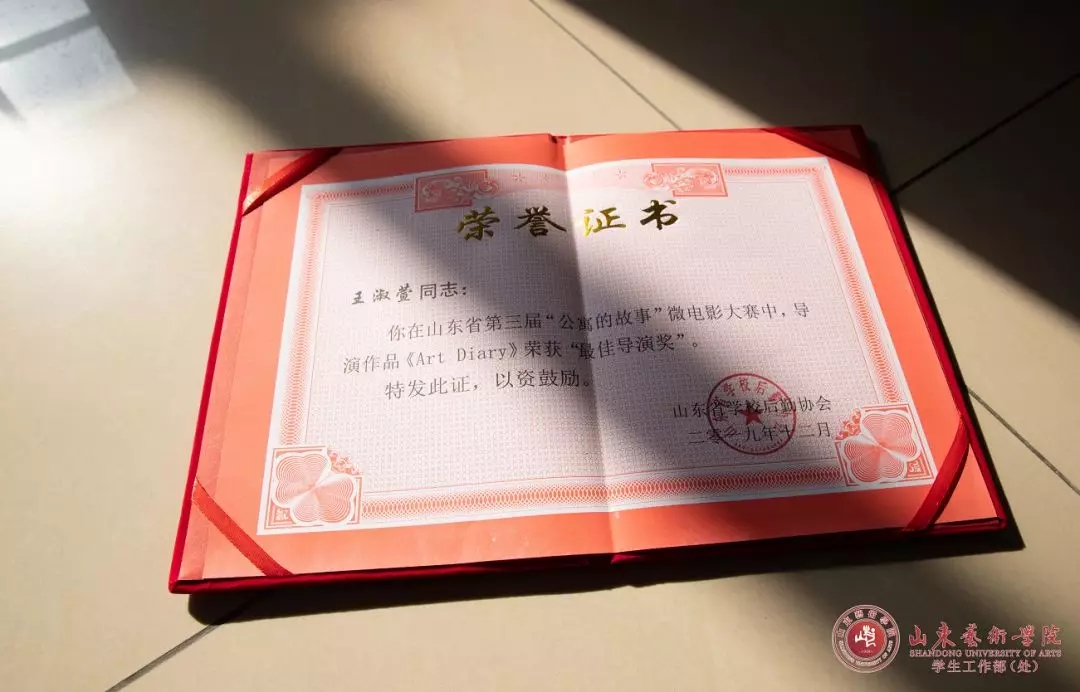 荣誉证书
王淑萱同志：
你在山东省第三届“公寓的故事”微电影大赛中，导
演作品《Art Diary》荣获“最佳导演奖”。
特发此证，以资鼓励。
山东省学校后勤协会
二零一九年十二月
山東藝術學院
SHANDONG UNIVERSITY OF ARTS
学生工作部（处）